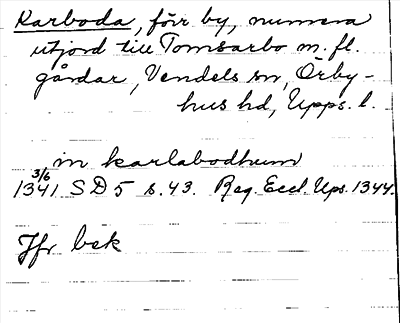 Karboda, förr by, numera
utjord till Tomsarbo m.fl.
gårdar, Vendels sn, Örby-
hus hd, Upps. l.
in karlabodhum
3/6
1341 SD 5 s.43. Reg. Eccl. Ups. 1344.
Jfr bck